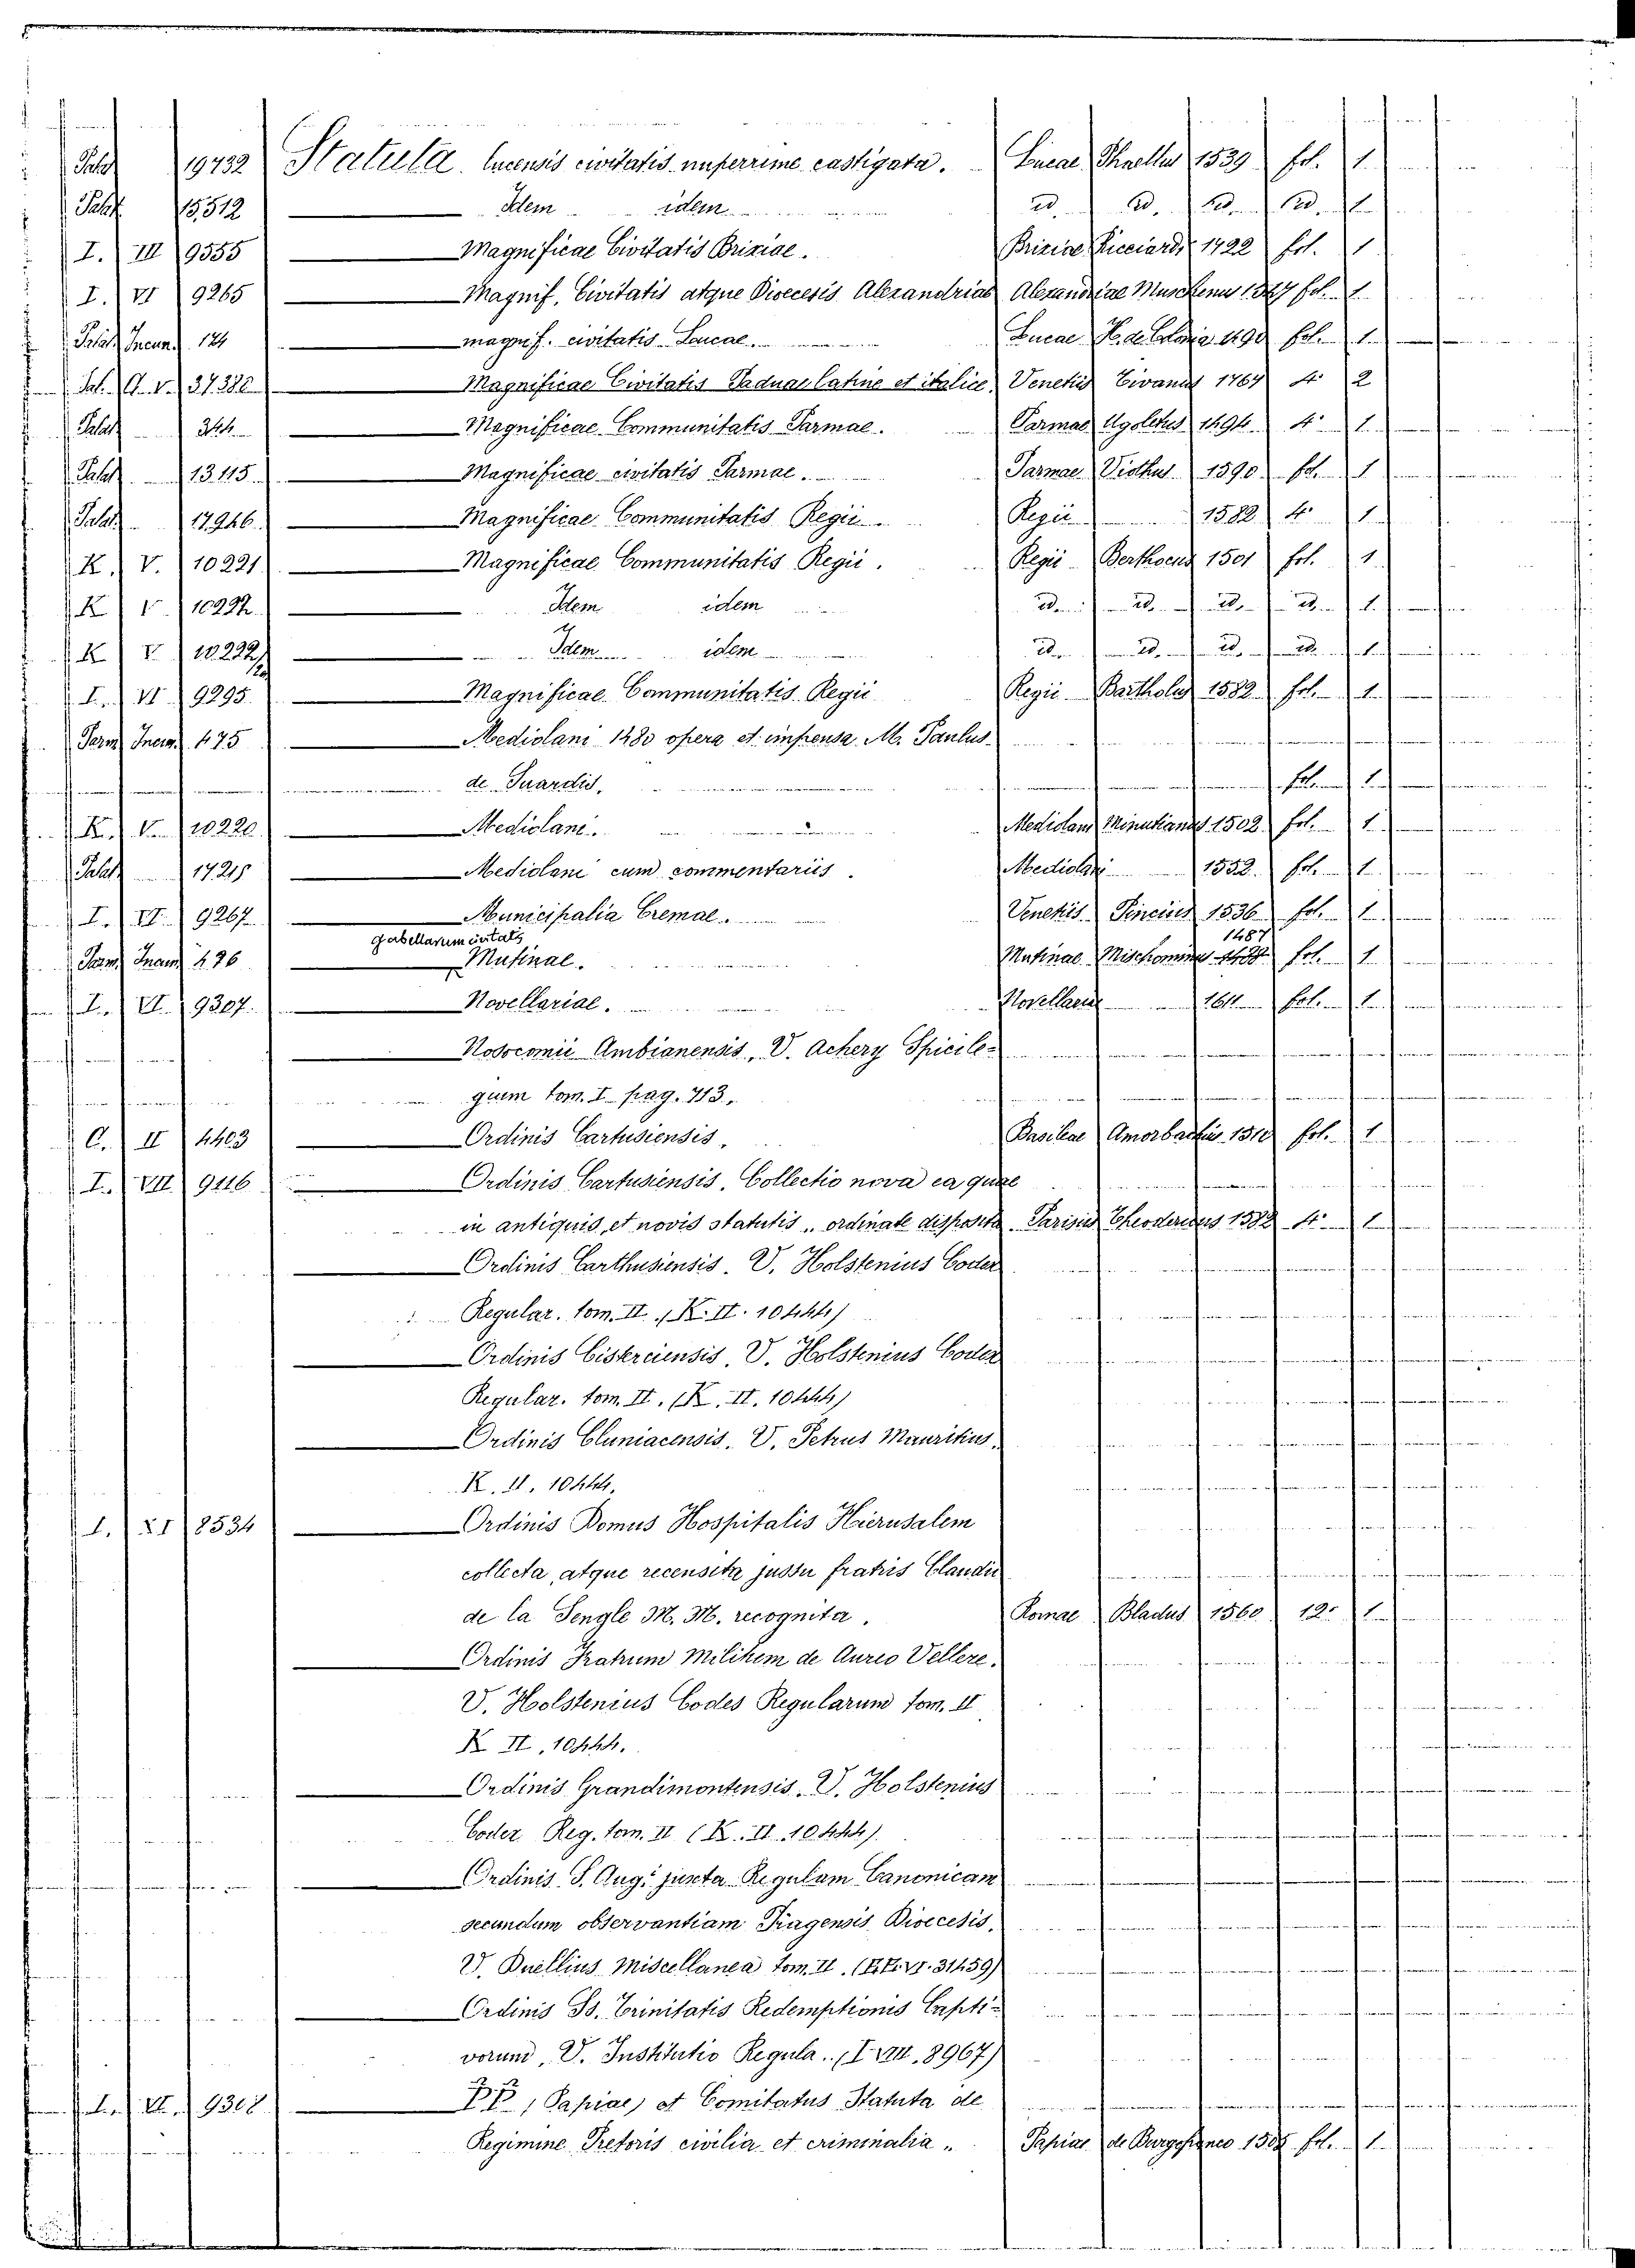 Palat 19732 Statuta lucensis civitatis nuperrime castigata. Lucae Phaellus 1539 fol. 1
Palat 15512 Idem idem id. id. id. id. 1
I. III 9555 Magnificae Civitatis Brixiae. Brixiae Ricciardi 1422 fol. 1
I. VI 9265 Magnif. Civitatis atque Dioecesis Alexandriae Alexandriae Muschenus 1547 fol. 1
Palat Incun. 124 magnif. civitatis Lucae. Lucae H. de Colonia 1490 fol. 1
37382 Magnificae Civitatis Paduae latine et italice Venetiis 1767 4° 2
Palat 344 Magnificae Communitatis Parmae. Parmae Ugoletus 1494 4° 1
Palat 13115 Magnificae civitatis Parmae. Parmae Viothus 1590 fol. 1
Palat 17946 Magnificae Communitatis Regii. Regii 1582 4° 1
K. V. 10221 Magnificae Communitatis Regii. Regii 1501 fol. 1
K V Idem idem id. id. id. id. 1
K V 10222 Idem idem id. id. id. id. 1
I. VI 9295 Magnificae Communitatis Regii Regii Bartholus 1582 fol. 1
Parm Incun. 475 Mediolani 1480 opera et impensa M. Paulus
de Suardis. fol. 1
K. V. 10220 Mediolani. Mediolani Minutianus 1502 fol. 1
Palat 17215 Mediolani cum commentariis. Mediolani 1552 fol. 1
I. VI 9267 Municipalia Cremae. Venetiis Pincius 1536 fol. 1
gabellarum civitatis 1487
Parm Incun 436 Mutinae. Mutinae Mischominus fol. 1
I. VI 9307 Novellariae. Novellariae 1611 fol. 1
Nosocomii Ambianensis, V. Achery Spicile-
gium tom. I. pag. 713.
C. II 4403 Ordinis Cartusiensis. Basileae Amorbachius 1510 fol. 1
I. VII 9116 Ordinis Cartusiensis. Collectio nova ea quae
in antiquis, et novis statutis, ordinate disposita Parisiis 1582 4° 1
Ordinis Carthusiensis. V. Holstenius Codex
Regular. tom. II. (K. II. 10444)
Ordinis Cisterciensis. V. Holstenius Codex
Regular. tom. II. (K. II. 10444)
Ordinis Cluniacensis. V. Petrus Mauritius.
K. II. 10444.
I. XI 8534 Ordinis Domus Hospitalis Hierusalem
collecta, atque recensita jussu fratris Claudii
de la Sengle M. M. recognita. Romae Bladus 1560 12° 1
Ordinis Fratrum Militum de Aureo Vellere.
V. Holstenius Codes Regularum tom. II
K II. 10444.
Ordinis Grandimontensis. V. Holstenius
Codex Reg. tom. II (K. II. 10444).
Ordinis S. Aug.i juxta Regulam Canonicam
secundum observantiam Pragensis Dioecesis.
V. Duellius Miscellanea tom. II. (EE. VI. 31459)
Ordinis Ss. Trinitatis Redemptionis Capti-
vorum. V. Institutio Regula.. (I. VII. 8967)
I. VI. 9308 PP (Papiae) et Comitatus Statuta de
Regimine Pretoris civilia et criminalia. Papiae de Burgofranco 1505 fol. 1